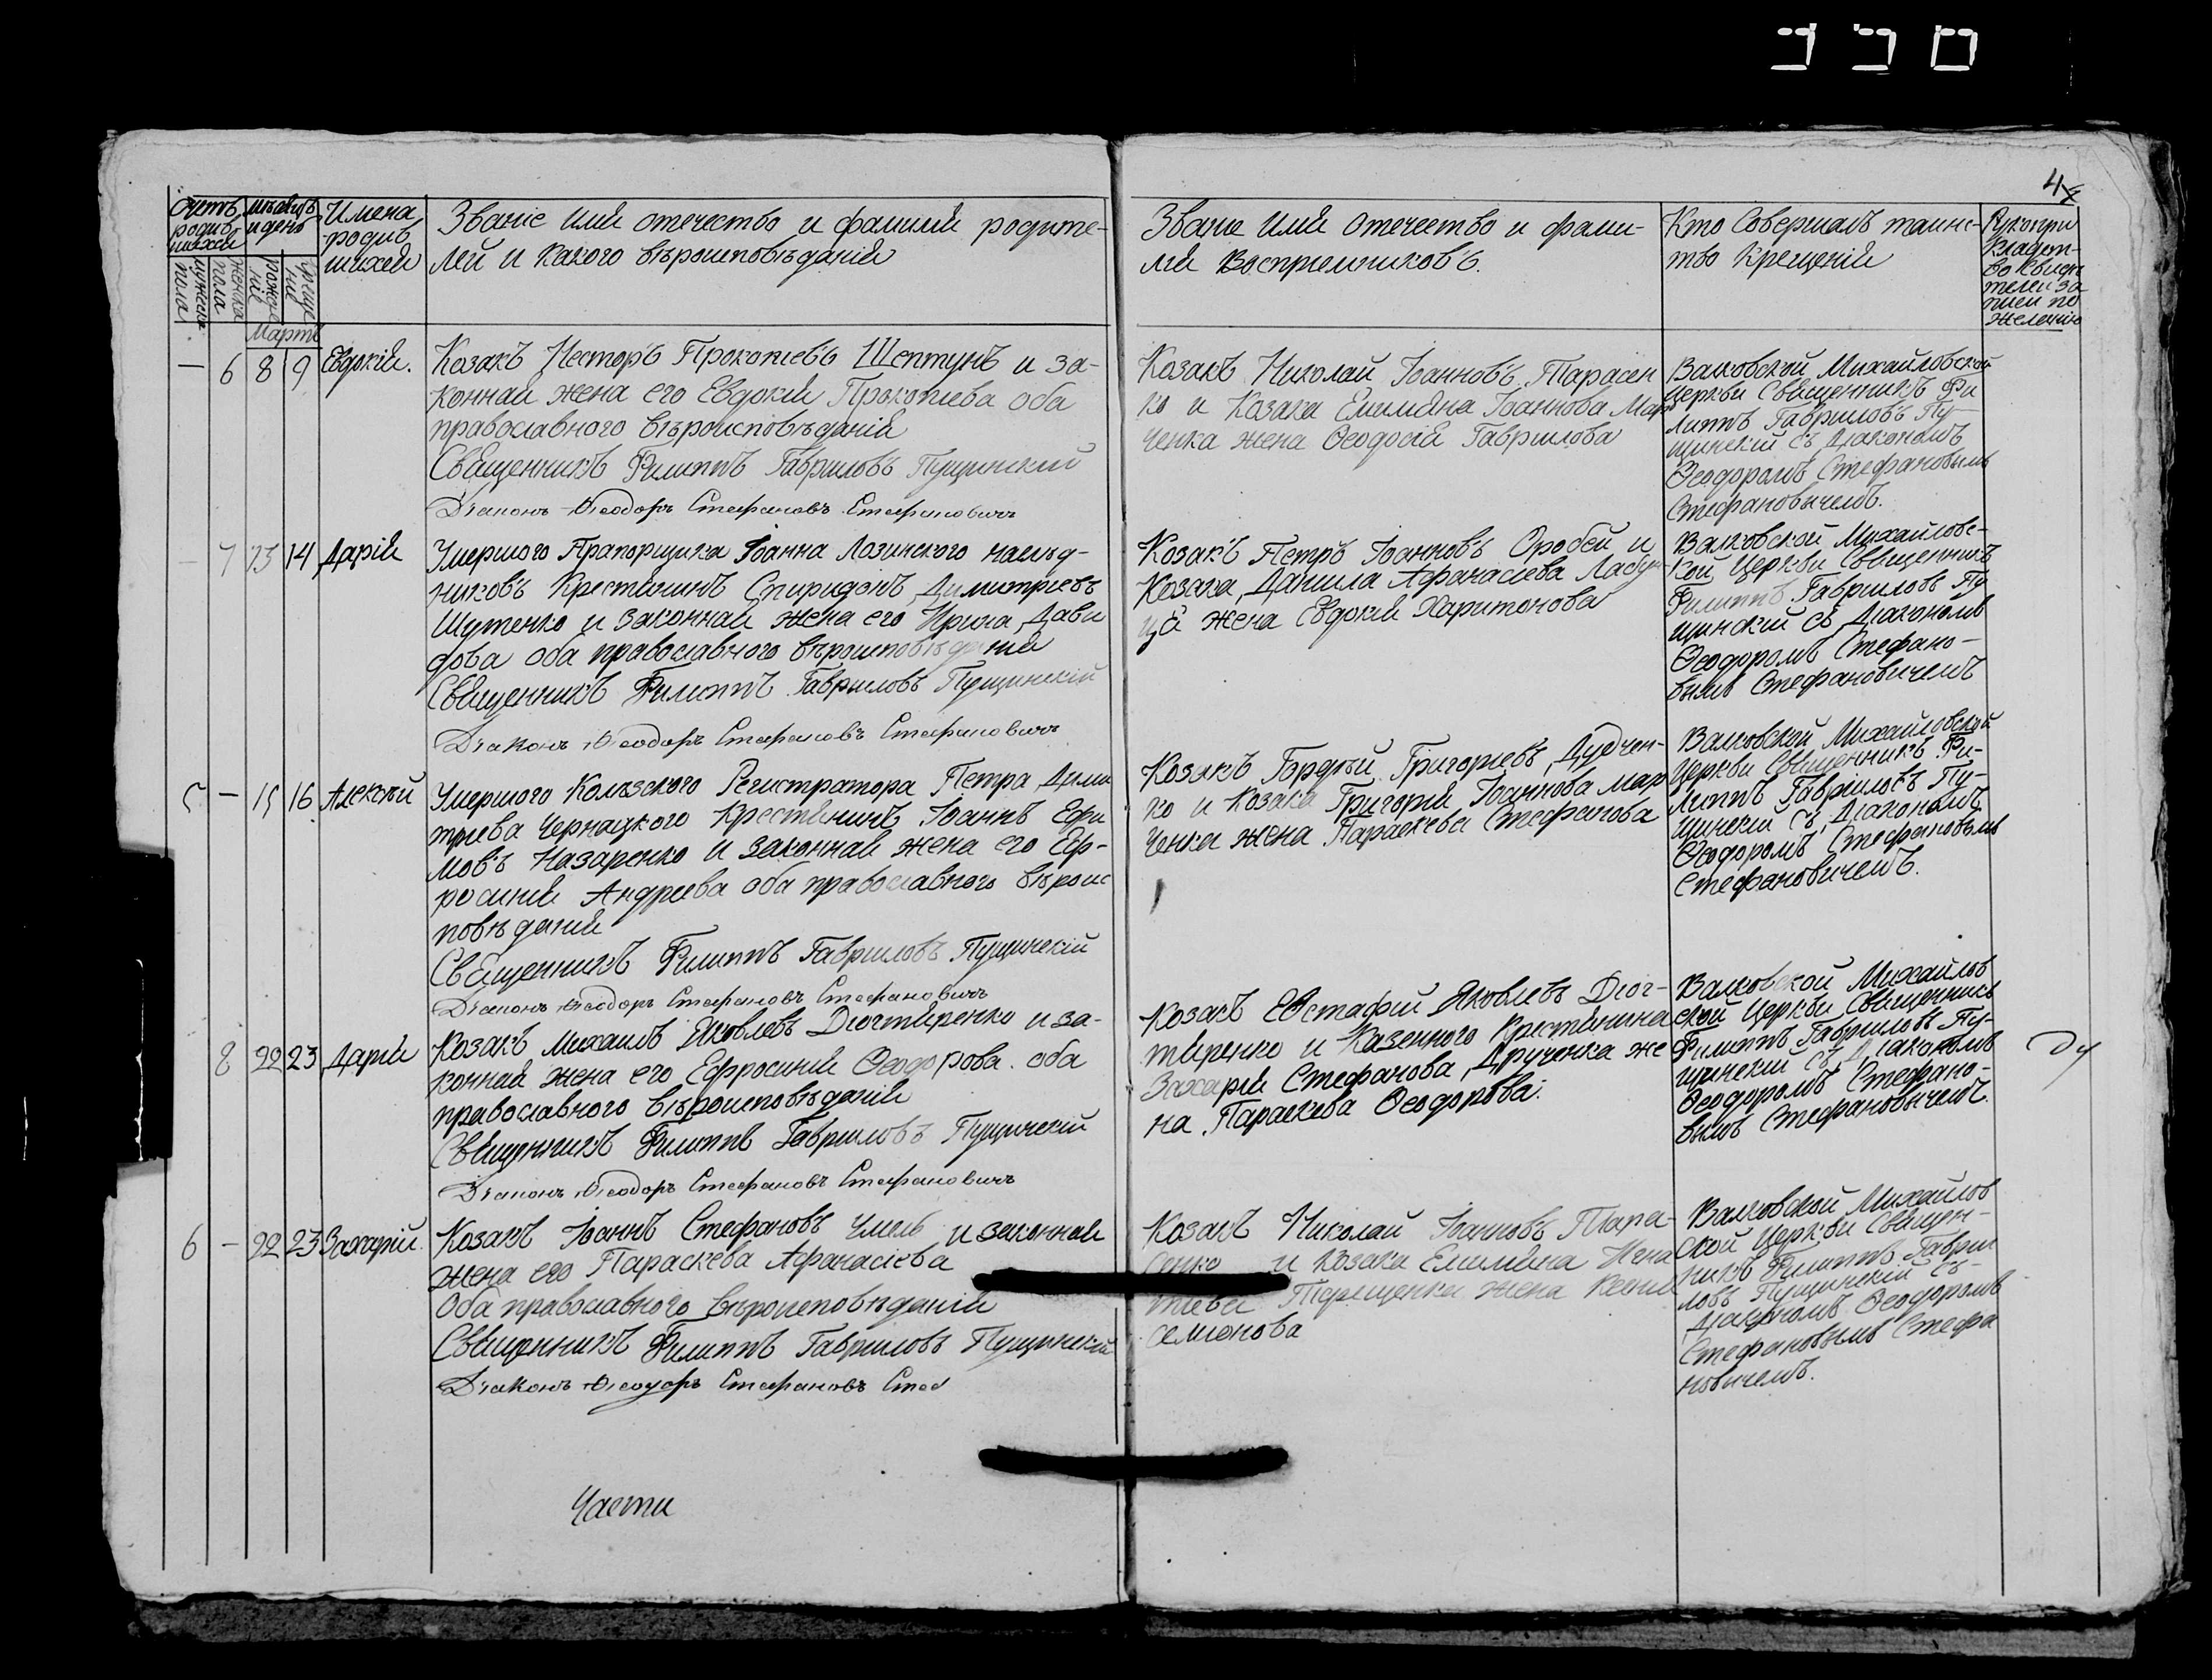 4
Счетъ родив шихся
мѣсяцъ и день
Имена родив шихся
Званіе Имя отечество и фамилія родите-
лей и какого вѣроисповѣданія
Званіе Имя отечество и фами-
лія Воспріемниковъ.
Кто Совершалъ таинс-
тво Крещенія
Рукопри
кладст-
во свидѣ
телей за
писи по
желанію
мужеска пола
женска пола
рожде ніе
креще ніе
Мартъ
— 6 8 9 Евдокія.
Козакъ Несторъ Прокопіевъ Шептунъ и за-
конная жена его Евдокія Прокопіева оба
православного вѣроисповѣданія
Священникъ Филиппъ Гавриловъ Пущинскій
Діаконъ Ѳеодоръ Стефановъ Стефановичъ
Козакъ Николай Іоанновъ Тарасен
ко и Козака Емиліяна Іоаннова Мар
ченка жена Ѳеодосія Гаврилова
Валковской Михайловской
Церкви Священникъ Фи
липпъ Гавриловъ Пу-
щинскій съ Діакономъ
Ѳеодоромъ Стефановымъ
Стефановичемъ.
— 7 13 14 Дарія
Умершого Прапорщика Іоанна Лозинского наслѣд-
никовъ Крестянинъ Спиридонъ Димитріевъ
Шутенко и законная жена его Ирина Дави
дова оба православного вѣроисповѣданія
Священникъ Филиппъ Гавриловъ Пущинскій
Діаконъ Ѳеодоръ Стефановъ Стефановичъ
Козакъ Петръ Іоанновъ Оробей и
Козака Данила Афанасіева Лабун
ця жена Евдокія Харитонова
Валковской Михайловс-
кой Церкви Священникъ
Филиппъ Гавриловъ Пу
щинскій съ Діакономъ
Ѳеодоромъ Стефано-
вымъ Стефановичемъ
5 — 15 16 Алексѣй
Умершого Колѣзского Регистратора Петра Дими
тріева Чернацкого Крестянинъ Іоаннъ Ефи
мовъ Назаренко и законная жена его Еф-
росинія Андреева оба православного вѣроис
повѣданія
Священникъ Филиппъ Гавриловъ Пущинскій
Діаконъ Ѳеодоръ Стефановъ Стефановичъ
Козакъ Гордѣй Григоріевъ Дудчен-
ко и Козака Григорія Іоаннова Мар
ченка жена Параскева Стефанова
Валковской Михайловской
Церкви Священникъ Фи-
липпъ Гавріиловъ Пу-
щинскій съ Діакономъ
Ѳеодоромъ Стефановымъ
Стефановичемъ.
8 22 23 Дарія
Козакъ Михаилъ Яковлевъ Дюгтяренко и за-
конная жена его Ефросинія Ѳеодорова оба
православного вѣроисповѣданія
Священникъ Филиппъ Гавриловъ Пущинскій
Діаконъ Ѳеодоръ Стефановъ Стефановичъ
Козакъ Евстафій Яковлевъ Дюг-
тяренко и Казенного Крестянина
Захарія Стефанова Друченка же
на Параскева Ѳеодорова.
Валковской Михайлов
ской Церкви Священникъ
Филиппъ Гавриловъ Пу-
щинскій съ Діакономъ
Ѳеодоромъ Стефано-
вымъ Стефановичемъ.
6 — 22 23 Захарій.
Козакъ Іоаннъ Стефановъ Чмель и законная
жена его Параскева Афанасіева
Оба православного вѣроисповѣданія
Священникъ Филиппъ Гавриловъ Пущинскій
Діаконъ Ѳеодоръ Стефановъ Стеф
Козакъ Николай Іоанновъ Тара-
сенко и Козака Емиліяна Игна
тіева жена
Семіонова
Валковской Михайлов
ской Церкви Священ-
никъ Филиппъ Гаври
ловъ Пущинскій съ-
Діакономъ Ѳеодоромъ
Стефановымъ Стефа
новичемъ.
Части